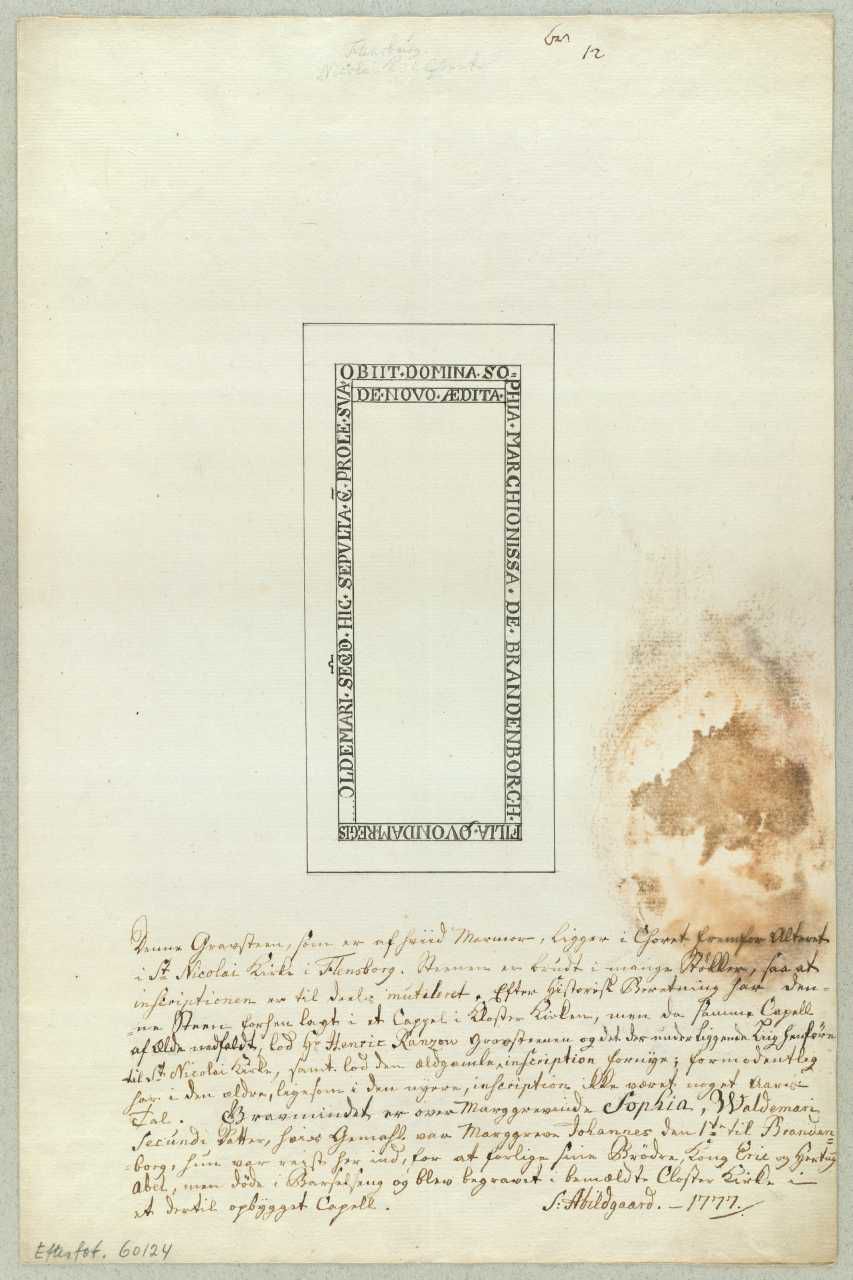 6an
12
Flensburg.
Nicolai
OBIIT·DOMINA·SO=
PHIA·MARCHIONISSA·DE·BRANDENBORCH·
FILIA·QVONDAM·REGIS
....OLDEMARI·SECVD·HIC·SEPVLTA·C·PROLE·SVA·
DE·NOVO·ÆDITA·
Denne Gravsteen, som er af hviid Marmor, ligger i Choret fremfor Alteret
i St. Nicolai Kirke i Flensborg. Steenen er brudt i mange Støkker, saa at
inscriptionen er til deels mutileret. Efter Historisk Beretning har den-
-ne Steen forhen lagt i et Cappel i Closter Kirken, men da samme Capell
af Ælde nedfaldt, lod Hr. Henric Ranzow Gravsteenen og det der under liggende Liig henføre
til St. Nicolai Kirke, samt lod den ældgamle inscription fornye; formodentlig
har i den ældre, ligesom i den nyere, inscription ikke været noget Aars
Tal. Gravmindet er over Marggrevinde Sophia, Waldemari
Secundi Datter, hvis Gemahl var Marggreve Johannes den 1te til Branden=
borg, hun var reist her ind, for at forlige sine Brødre, Kong Eric og Hertug
Abel, men døde i Barselseng og blev begravet i bemældte Closter Kirke i
et dertil opbygget Capell.
S: Abildgaard. – 1777.
Efterfot. 60124